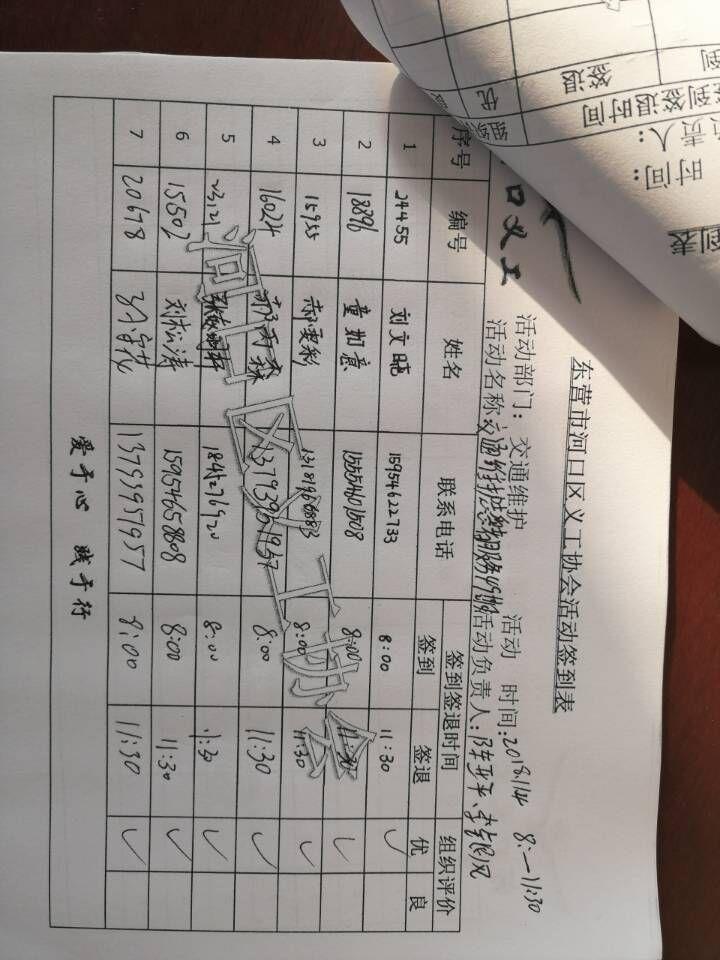 东营市河口区义工协会活动签到表
活动部门：交通维护 活动 时间：2018.1.14 8:—11:30
活动名称：交通维护 活动负责人：
口义工
序号 编号 姓名 联系电话 签到签退时间 组织评价
签到 签退 优 良
1 24455 刘文晓 15954622733 8:00 11:30 ✓
2 18896 童如意 15554601508 8:00 11:30 ✓
3 15955 郝雯彩 8:00 11:30 ✓
4 16024 13793961937 8:00 11:30 ✓
5 23121 8:00 11:30 ✓
6 15502 刘松涛 15954658808 8:00 11:30 ✓
7 20678 13793957957 8:00 11:30 ✓
爱于心 践于行
河口区义工协会
到表
时间：
责人：
到签退时间
签退
优